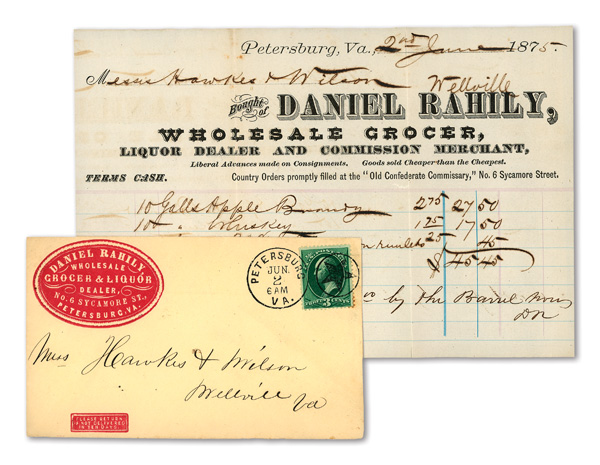 Petersburg, Va., 2nd June 1875.
Messrs Hawkes & Wilson Wellville
Bought of DANIEL RAHILY,
WHOLESALE GROCER,
LIQUOR DEALER AND COMMISSION MERCHANT,
Liberal Advances made on Consignments. Goods sold Cheaper than the Cheapest.
TERMS CASH. Country Orders promptly filled at the "Old Confederate Commissary," No. 6 Sycamore Street.
10 Galls Apple Brandy 2 75 27 50
10 " Whiskey 1 75 17 50
45
$ 45 45
by the Barrel
DR
DANIEL RAHILY,
WHOLESALE
GROCER & LIQUOR
DEALER,
NO. 6 SYCAMORE ST.,
PETERSBURG, VA.
PETERSBURG
JUN.
2
6 AM
VA.
THREE CENTS
Mess Hawkes & Wilson
Wellvill
Va
PLEASE RETURN
IF NOT DELIVERED
IN TEN DAYS